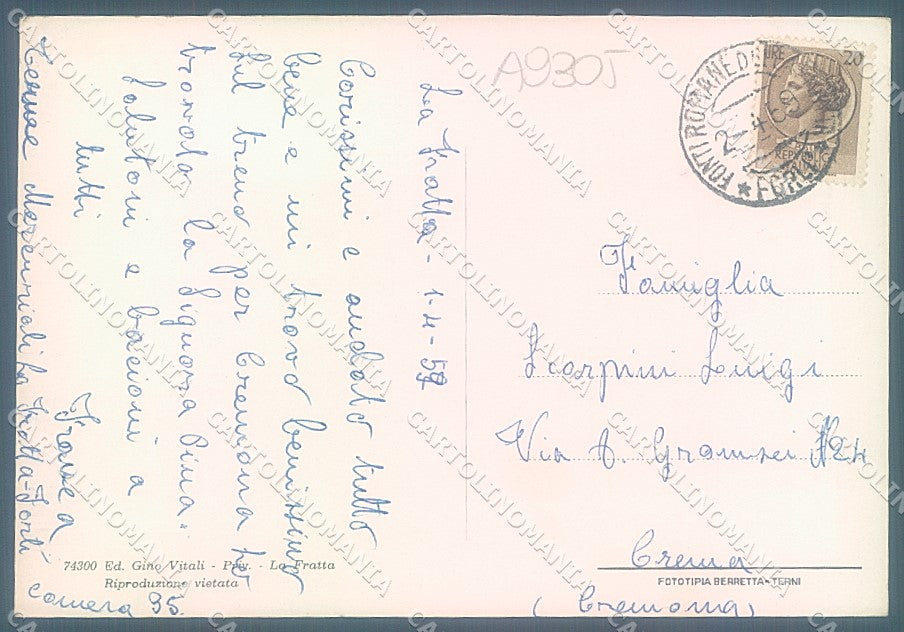 A9305
LIRE 20
FONTI ROMANE
FORLI
La Fratta - 1-4-59
Carissimi è andato tutto
bene e mi trovo benissimo
sul treno per Cremona ho
trovato la Signora Pina.
Salutoni e bacioni a
tutti
Franca
Terme Mercuriali La Fratta - Forlì
camera 35
Famiglia
Scorpini Luigi
Via A. Gramsci N 24
Crema
(Cremona)
74300 Ed. Gino Vitali - Priv. - La Fratta
Riproduzione vietata
FOTOTIPIA BERRETTA - TERNI
CARTOLINOMANIA